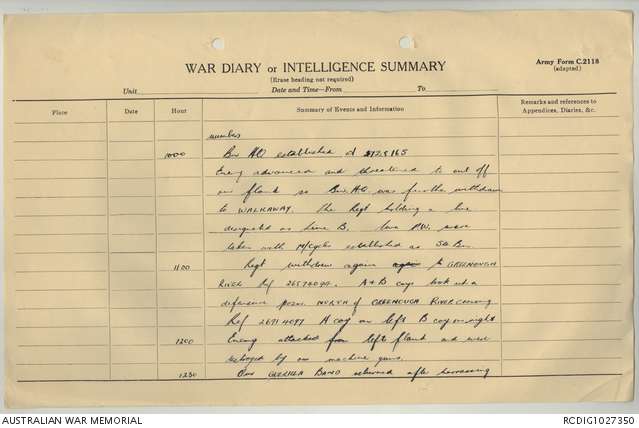 Army Form C.2118
(adapted)
WAR DIARY or INTELLIGENCE SUMMARY
(Erase heading not required)
Unit Date and Time—From To
Place Date Hour Summary of Events and Information Remarks and references to
Appendices, Diaries, &c.
numbers
1000 Bn HQ established at
Enemy advanced and threatened to cut off
our flank so Bn HQ was further withdrawn
to WALKAWAY. The Regt holding a line
designated as Line B. Two P.W. were
taken with M/cycles established as Bn.
1100 Regt withdrew again to GREENOUGH
RIVER Ref A & B coys took up a
defensive posn. NORTH of GREENOUGH RIVER covering
Ref A coy on left B coy on right
1200 Enemy attacked from left flank and were
destroyed by our machine guns.
1230 Our GUERILLA BAND returned after harrassing
AUSTRALIAN WAR MEMORIAL
RCDIG1027350